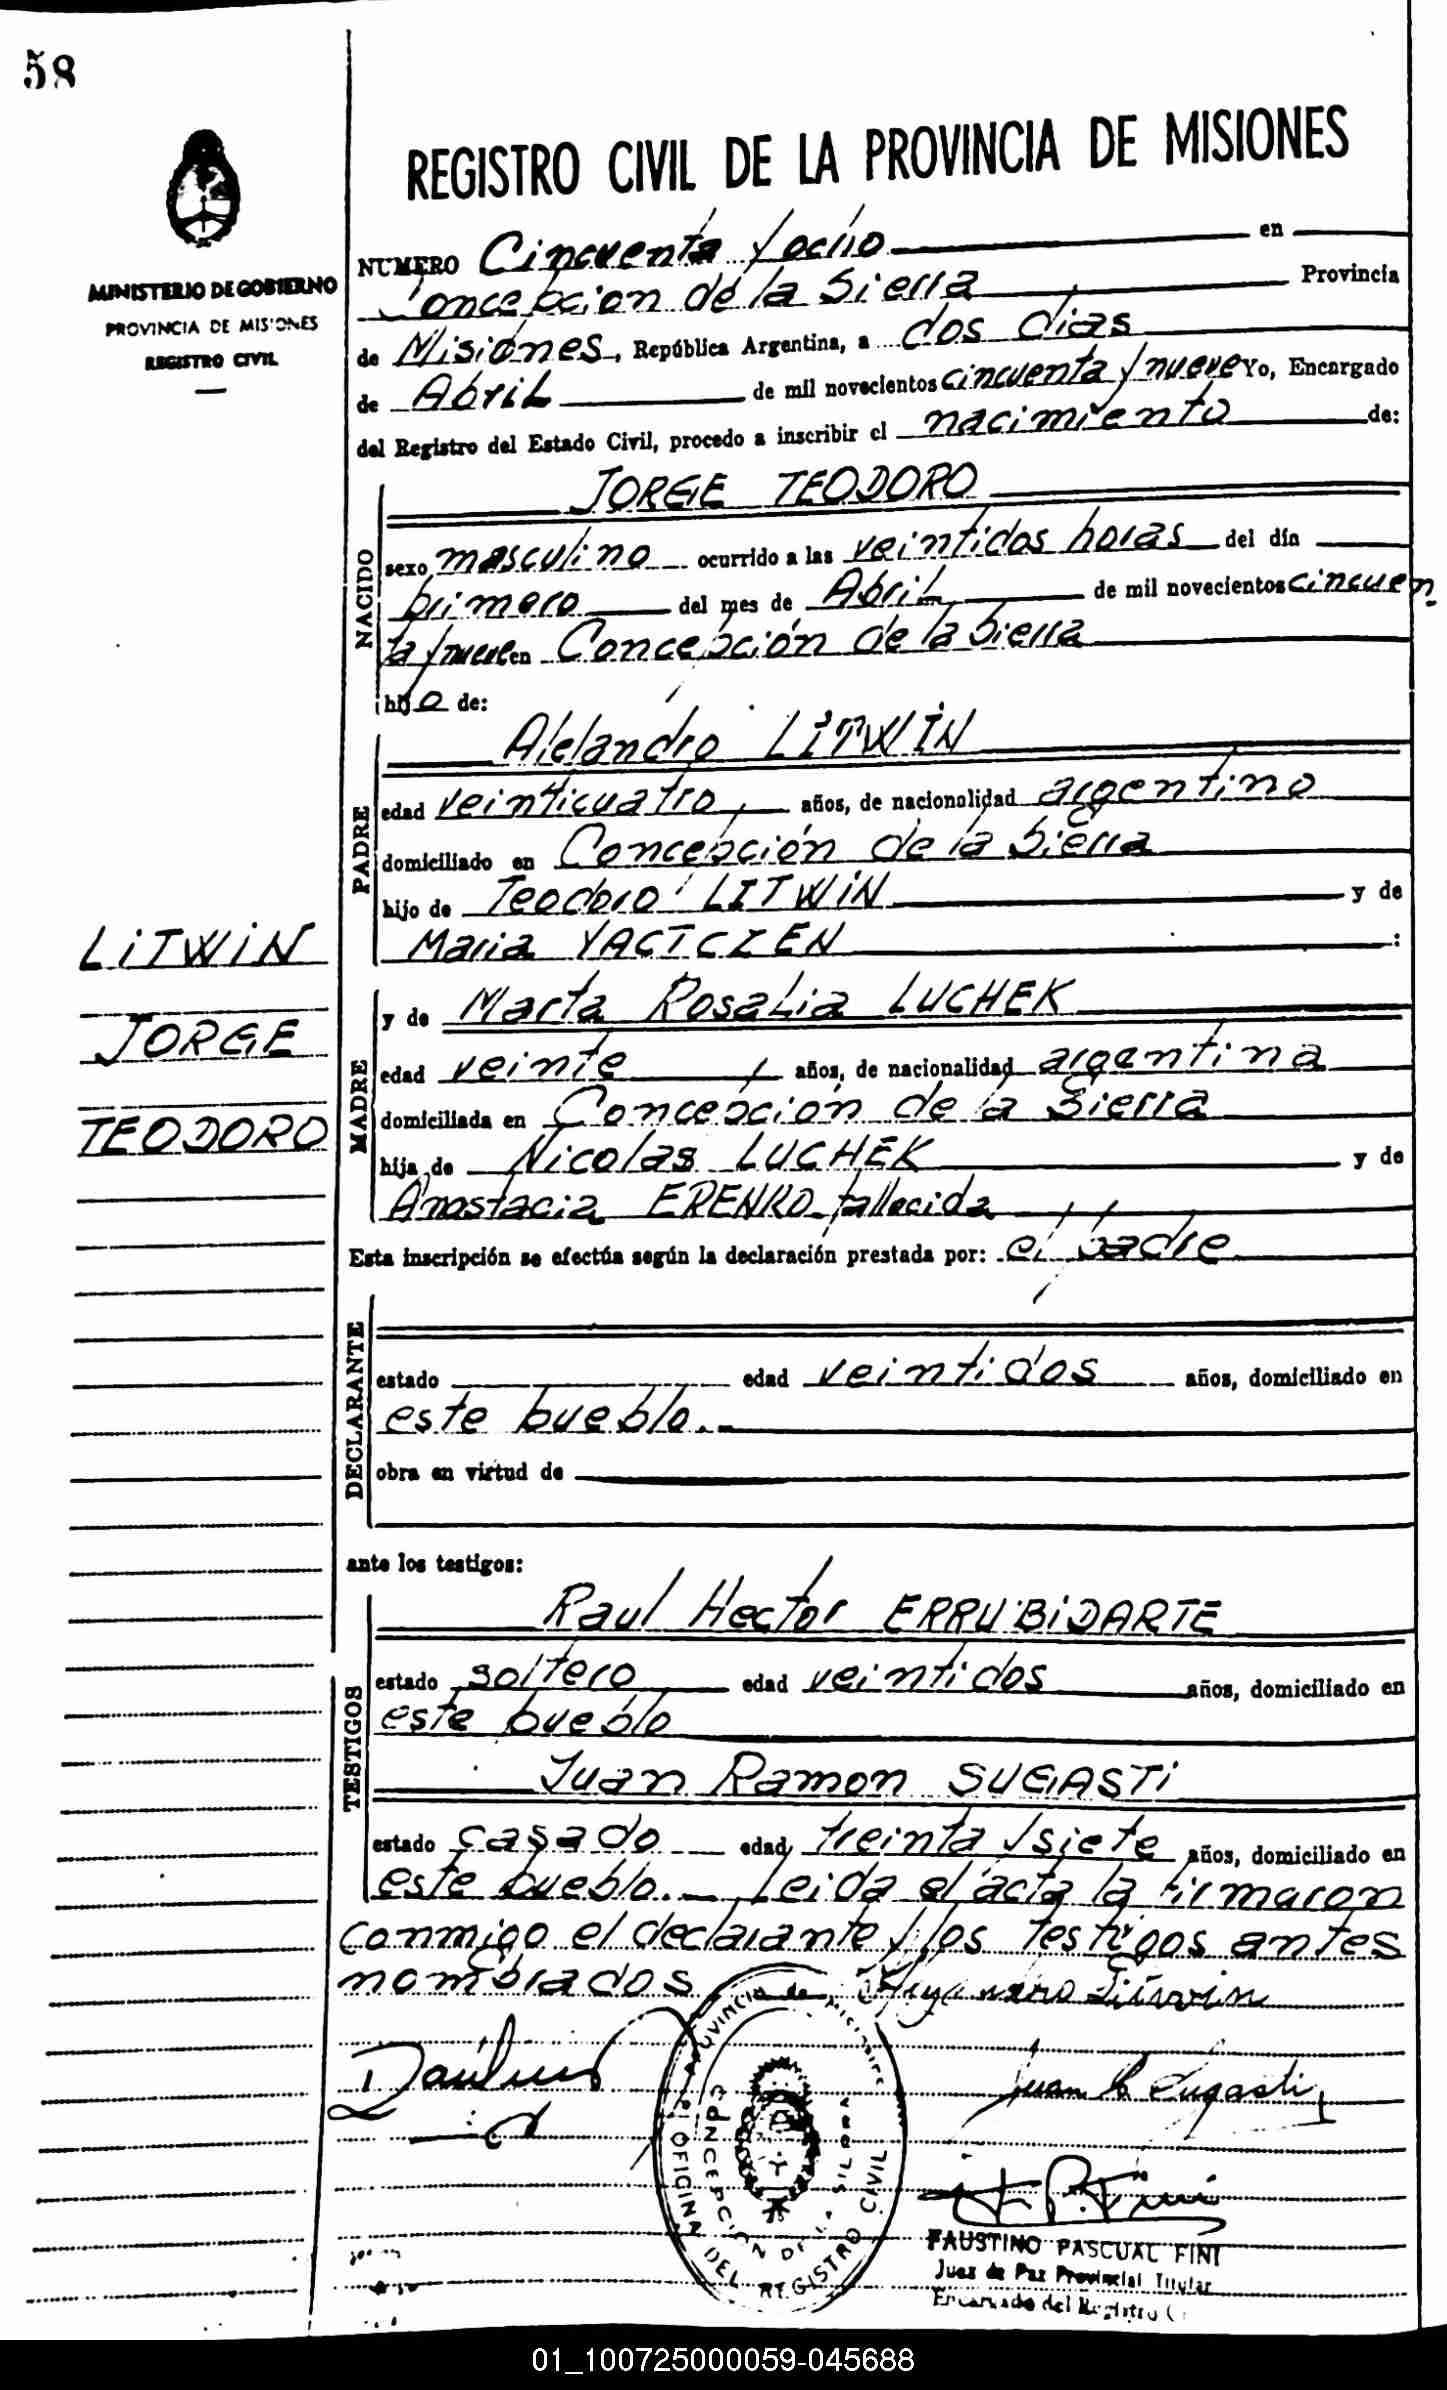 58
REGISTRO CIVIL DE LA PROVINCIA DE MISIONES
MINISTERIO DE GOBIERNO
PROVINCIA DE MISIONES
REGISTRO CIVIL
NUMERO Cincuenta y ocho en
Concepcion de la Sierra Provincia
de Misiones, República Argentina, a dos dias
de Abril de mil novecientos cincuenta y nueve Yo, Encargado
del Registro del Estado Civil, procedo a inscribir el nacimiento de:
NACIDO
JORGE TEODORO
sexo masculino ocurrido a las veintidos horas del día
primero del mes de Abril de mil novecientos cincuen
ta y nueve en Concepción de la Sierra
hijo de:
PADRE
Alejandro LITWIN
edad veinticuatro años, de nacionalidad argentino
domiciliado en Concepción de la Sierra
hijo de Teodoro LITWIN y de
Maria YACTCZEN :
LITWIN
JORGE
TEODORO
MADRE
y de Marta Rosalia LUCHEK
edad veinte años, de nacionalidad argentina
domiciliada en Concepción de la Sierra
hija de Nicolas LUCHEK y de
Anastacia ERENKO fallecida
Esta inscripción se efectúa según la declaración prestada por: el padre
DECLARANTE
estado edad veintidos años, domiciliado en
este pueblo.-
obra en virtud de
ante los testigos:
TESTIGOS
Raul Hector ERRUBIDARTE
estado soltero edad veintidos años, domiciliado en
este pueblo
Juan Ramon SUGASTI
estado casado edad treinta y siete años, domiciliado en
este pueblo.- Leida el acta la firmaron
conmigo el declarante y los testigos antes
nombrados
Alejandro Litwin
Juan R Sugasti
PROVINCIA de MISIONES
OFICINA DEL REGISTRO CIVIL
CONCEPCION DE LA SIERRA
FAUSTINO PASCUAL FINI
Juez de Paz Provincial Titular
Encargado del Registro C
01_100725000059-045688